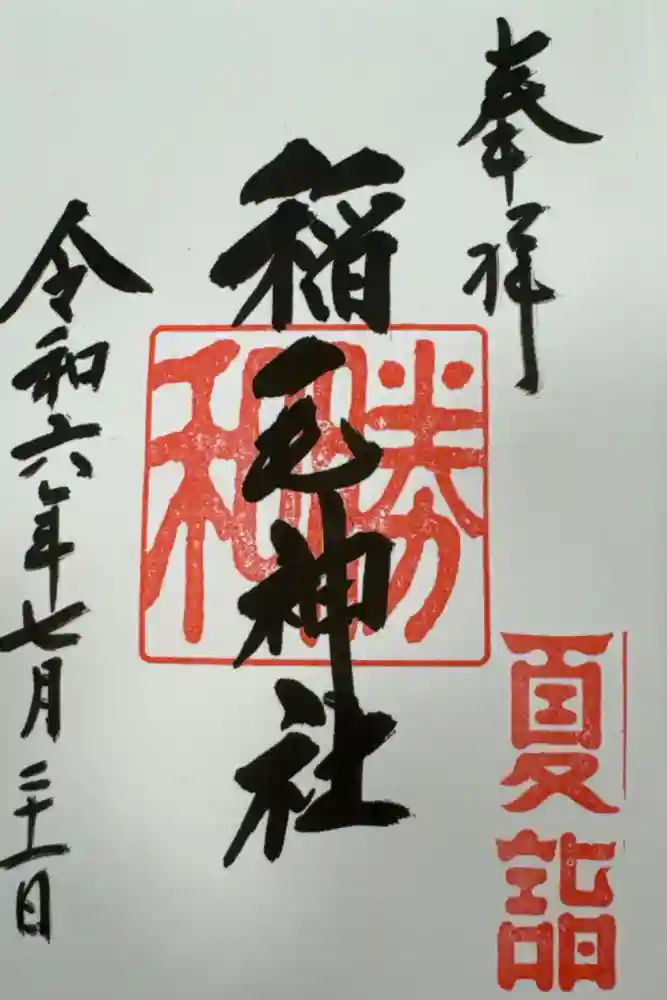 奉拝
夏詣
稲毛神社
勝和
令和六年七月二十一日